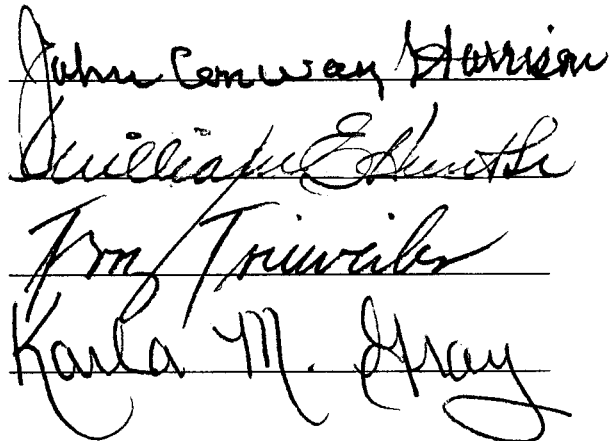 John Conway Harrison
William E Hunt Sr
Terry Trieweiler
Karla M. Gray